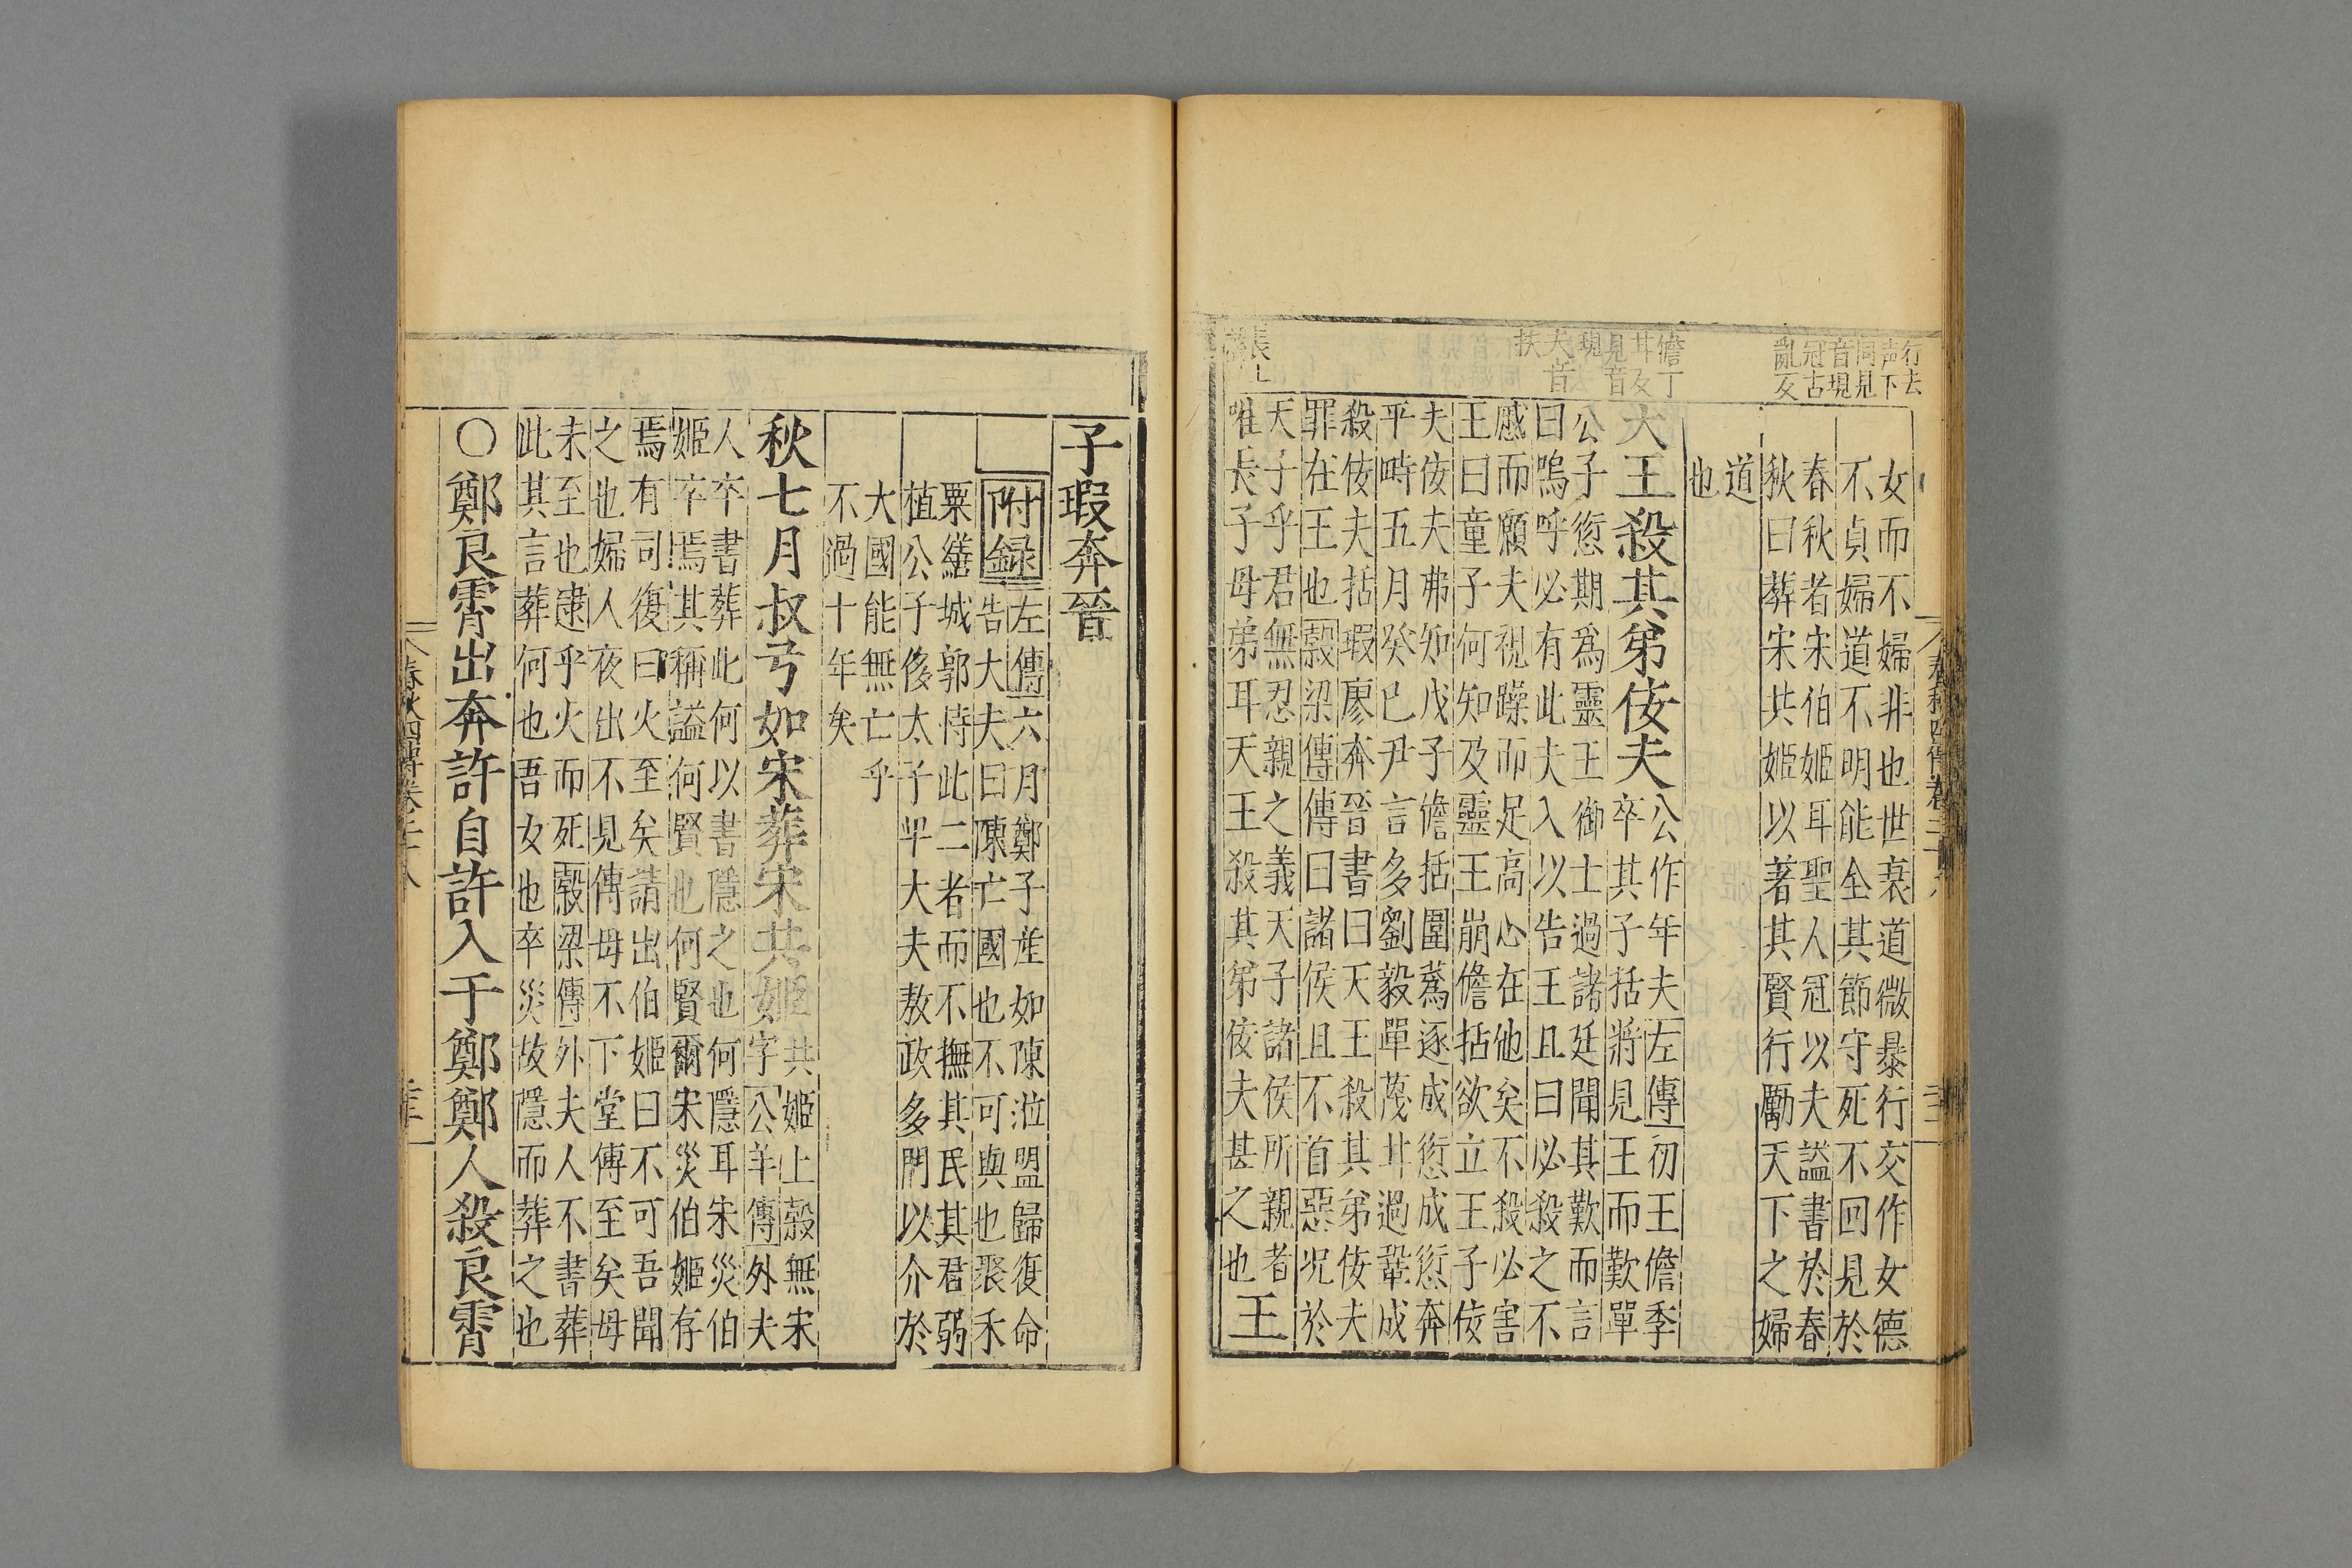 行去
声下
同見
音現
冠古
亂反
女而不婦非也世衰道微暴行交作女德
不貞婦道不明能全其節守死不回見於
春秋者宋伯姬耳聖人冠以夫謚書於春
秋曰葬宋共姬以著其賢行勵天下之婦
道
也
儋丁
甘反
見音
現
夫音
扶
天王殺其弟佞夫
公作年夫左傳初王儋季
卒其子括將見王而歎單
公子愆期爲靈王御士過諸廷聞其歎而言
曰嗚呼必有此夫入以告王且曰必殺之不
慼而願大視躁而足高心在他矣不殺必害
王曰童子何知及靈王崩儋括欲立王子佞
夫佞夫弗知戊子儋括圍蔿逐成愆成愆奔
平畤五月癸巳尹言多劉毅單蔑甘過鞏成
殺佞夫括瑕廖奔晉書曰天王殺其弟佞夫
罪在王也穀梁傳傳曰諸侯且不首惡況於
天子乎君無忍親之義天子諸侯所親者
唯長子母弟耳天王殺其弟佞夫甚之也
長上
王
子瑕奔晉
附錄
左傳六月鄭子產如陳涖盟歸復命
告大夫曰陳亡國也不可與也聚禾
粟繕城郭恃此二者而不撫其民其君弱
植公子侈太子卑大夫敖政多門以介於
大國能無亡乎
不過十年矣
秋七月叔弓如宋葬宋共姬
共姬上穀無宋
字公羊傳外夫
人卒書葬此何以書隱之也何隱耳宋災伯
姬卒焉其稱謚何賢也何賢爾宋災伯姬存
焉有司復曰火至矣請出伯姬曰不可吾聞
之也婦人夜出不見傅母不下堂傅至矣母
未至也逮乎火而死穀梁傳外夫人不書葬
此其言葬何也吾女也卒災故隱而葬之也
○鄭良霄出奔許自許入于鄭鄭人殺良霄
春秋四傳卷二十八